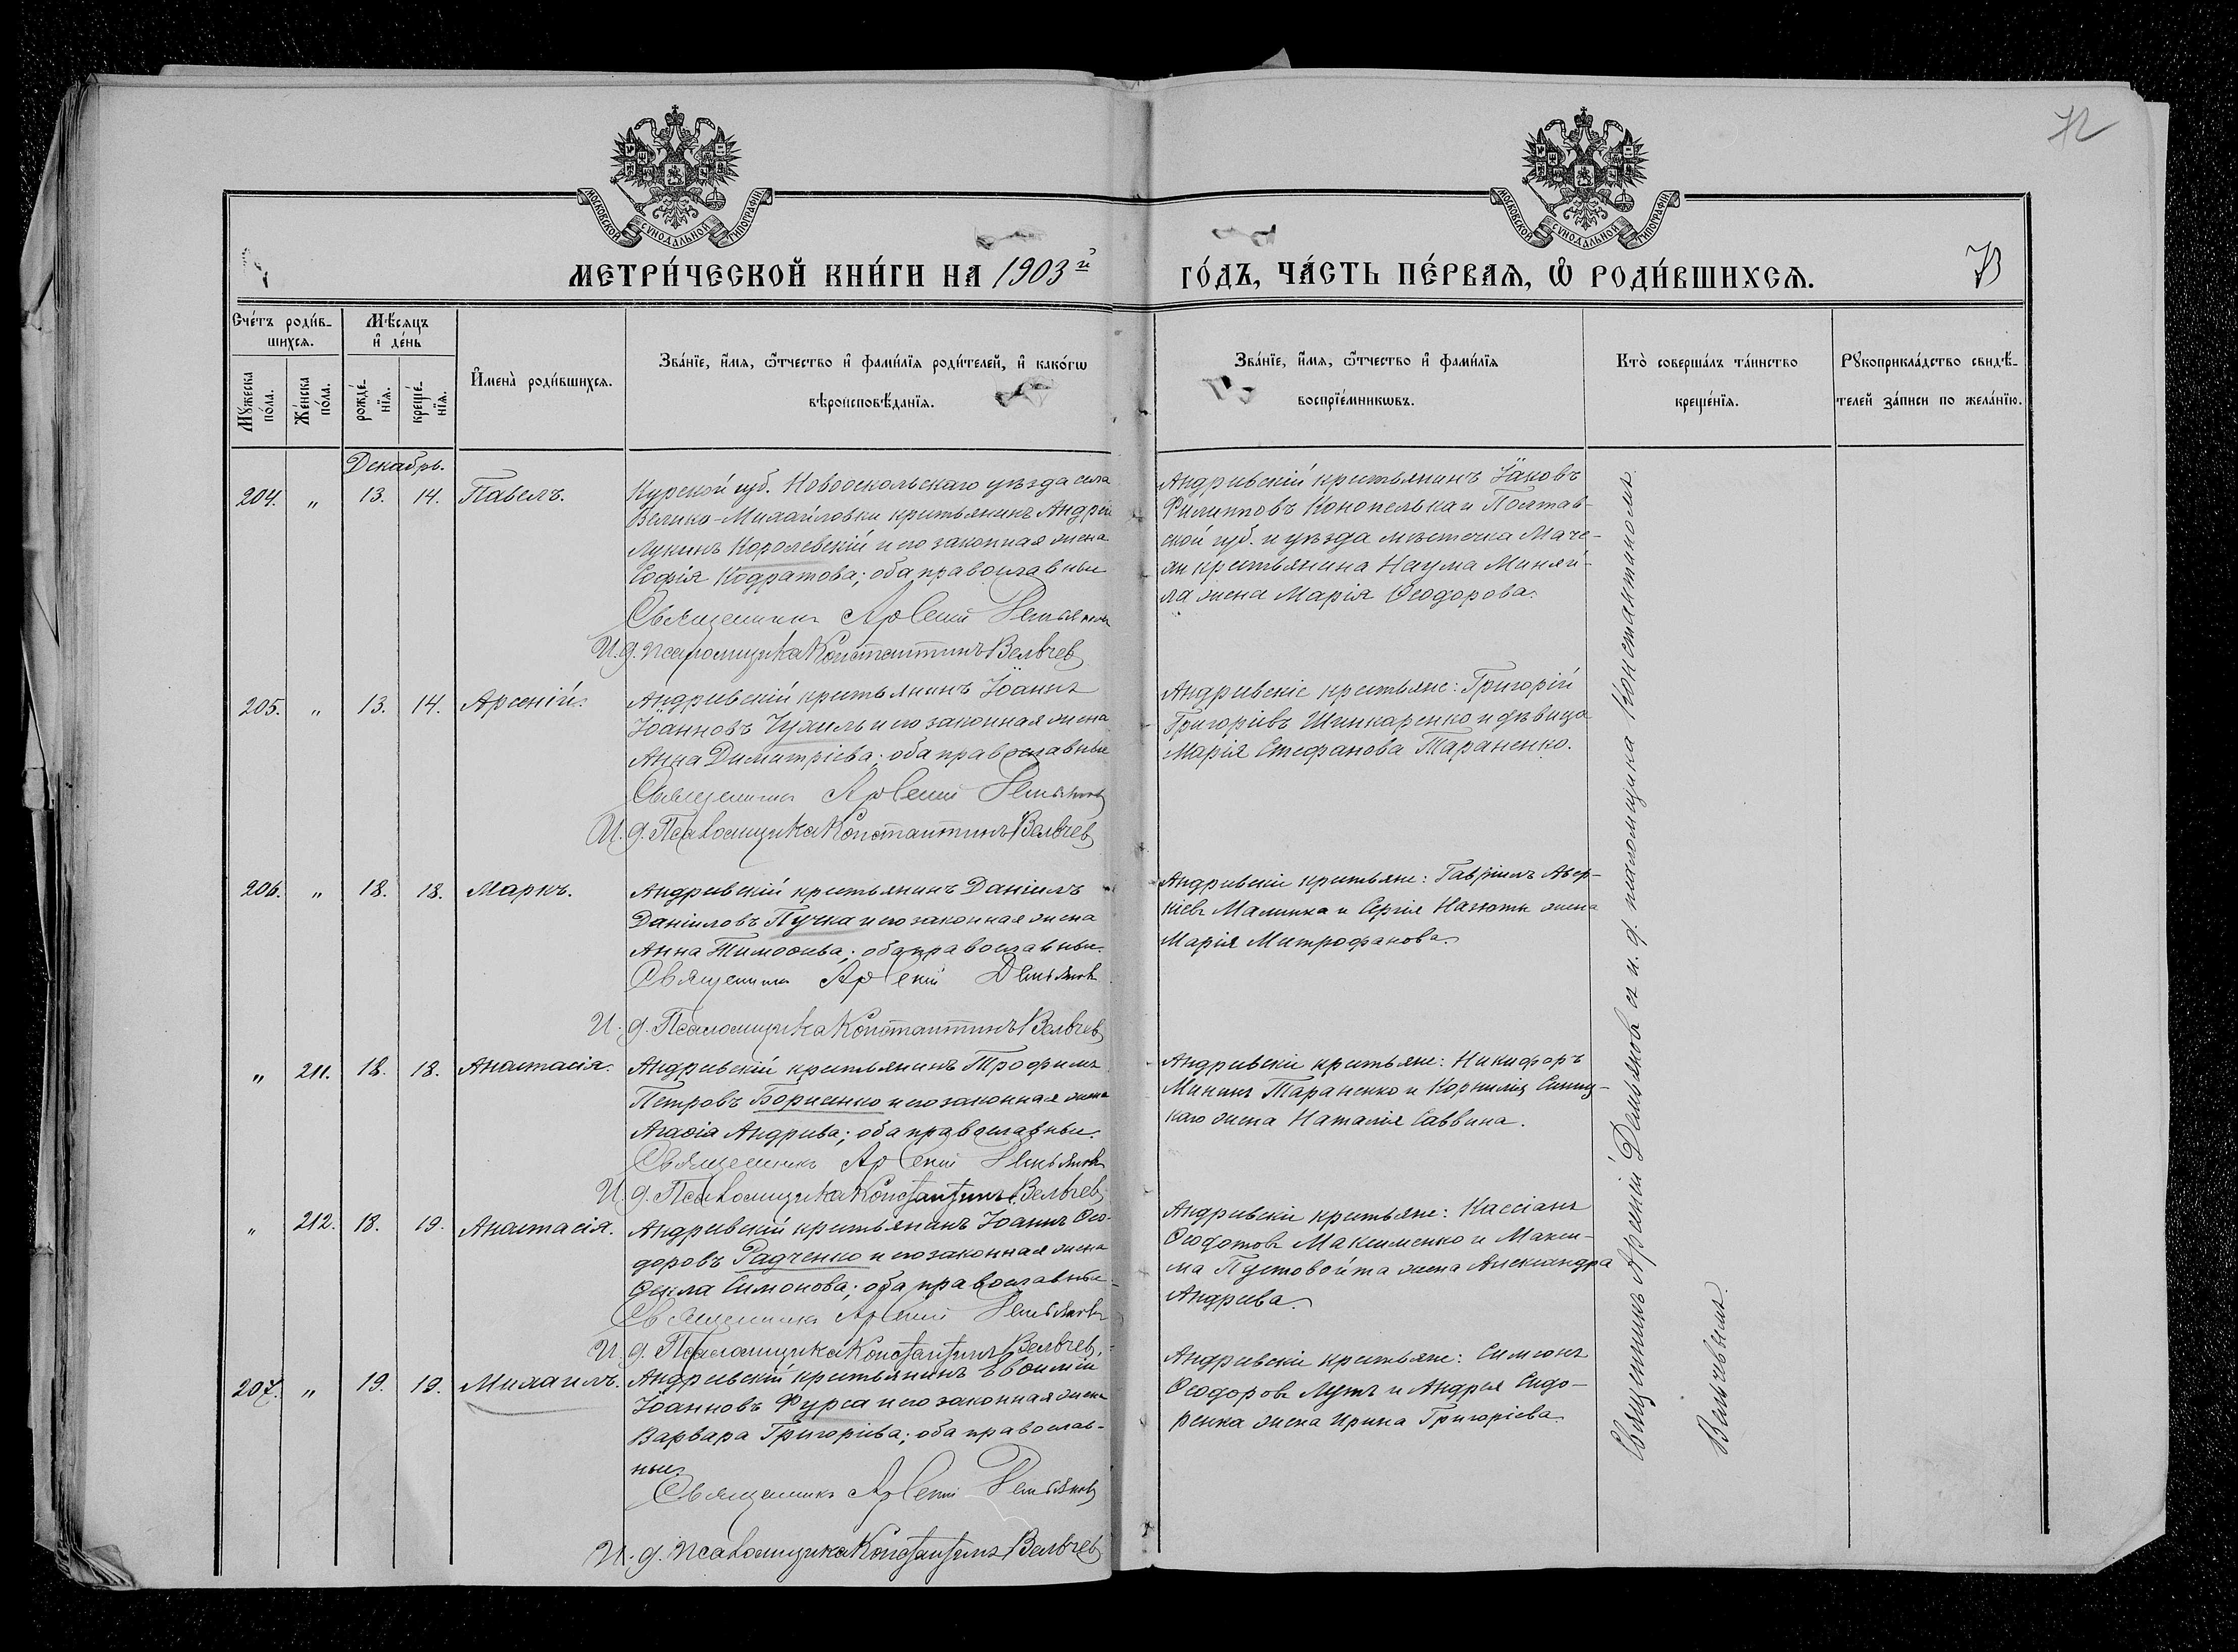 72
МОСКОВСКОЙ СѴНОДАЛЬНОЙ ТИПОГРАФІИ.
МОСКОВСКОЙ СѴНОДАЛЬНОЙ ТИПОГРАФІИ.
МЕТРИ́ЧЕСКОЙ КНИ́ГИ НА 1903й
ГО́ДЪ, ЧА́СТЬ ПЕ́РВАѦ, Ѡ҆ РОДИ́ВШИХСѦ.
Сче́тъ роди́в-
шихсѧ.
Мѣ́сяцъ
и҆ де́нь
Мꙋ́жеска по́ла.
Же́нска по́ла.
рожде́-нїѧ.
креще́-нїѧ.
И҆мена̀ роди́вшихсѧ.
Зва́нїе, и҆́мѧ, ѻ҆́тчество и҆ фамі́лїѧ роди́телей, и҆ како́гѡ
вѣроисповѣ́данїѧ.
Зва́нїе, и҆́мѧ, ѻ҆́тчество и҆ фамі́лїѧ
воспрїе́мникѡвъ.
Кто̀ соверша́лъ та́инство
креще́нїѧ.
Рꙋкоприкла́дство свидѣ́-
телей за́писи по жела́нїю.
Декабрь.
204. „ 13. 14. Павелъ.
Курской губ. Новооскольскаго уѣзда села
Велико-Михайловки крестьянинъ Андрей
Лукинъ Королевскій и его законная жена
Софія Кодратова; оба православные
Священникъ Арсеній Демьяновъ
И. д. псаломщика Константинъ Вельчев
Андреевскій крестьянинъ Іаковъ
Филипповъ Конопелька и Полтав-
ской губ. и уѣзда мѣстечка Маче-
хи крестьянина Наума Миняй-
ла жена Марія Ѳеодорова.
205. „ 13. 14. Арсеній.
Андреевскій крестьянинъ Іоаннъ
Іоанновъ Чухиль и его законная жена
Анна Димитріева; оба православные
Священникъ Арсеній Демьяновъ
И. д. Псаломщика Константинъ Вельчев
Андреевскіе крестьяне: Григорій
Григоріевъ Шинкаренко и дѣвица
Марія Стефанова Тараненко.
206. „ 18. 18. Маркъ.
Андреевскій крестьянинъ Даніилъ
Даніиловъ Пучка и его законная жена
Анна Тимоѳеева; оба православные.
Священникъ Арсеній Демьяновъ
И. д. Псаломщика Константинъ Вельчев
Андреевскіе крестьяне: Гавріилъ Авер-
кіевъ Малинка и Сергія жена
Марія Митрофанова.
„ 211. 18. 18. Анастасія.
Андреевскій крестьянинъ Трофимъ
Петровъ Борисенко и его законная жена
Агаѳія Андреева; оба православные.
Священникъ Арсеній Демьяновъ
И. д. Псаломщика Константинъ Вельчев
Андреевскіе крестьяне: Никифоръ
Мининъ Тараненко и Корнилія
жена Наталія Саввина.
„ 212. 18. 19. Анастасія.
Андреевскій крестьянинъ Іоаннъ Ѳео-
доровъ Радченко и его законная жена
Ѳекла Симонова; оба православные
Священникъ Арсеній Демьяновъ
И. д. Псаломщика Константинъ Вельчев
Андреевскіе крестьяне: Кассіанъ
Ѳеодотовъ Максименко и Макси-
ма Пустовойта жена Александра
Андреева.
207. „ 19. 19. Михаилъ.
Андреевскій крестьянинъ Евѳимій
Іоанновъ Фурса и его законная жена
Варвара Григоріева; оба православ-
ные.
Священникъ Арсеній Демьяновъ
И. д. псаломщика Константинъ Вельчев
Андреевскіе крестьяне: Симеонъ
Ѳеодоровъ Лутъ и Андрея Сидо-
ренка жена Ирина Григоріева.
Священникъ Арсеній Демьяновъ съ и. д. псаломщика Константиномъ
Вельчевымъ.